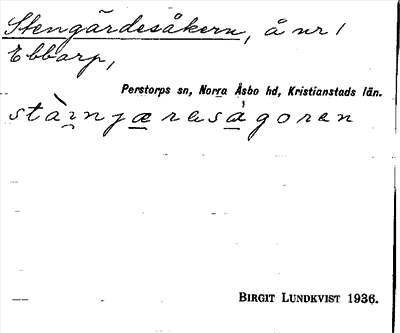 Stengärdesåkern, å nr 1
Ebbarp,
Perstorps sn, Norra Åsbo hd, Kristianstads län.
stàinjæresågoren
BIRGIT LUNDKVIST 1936.